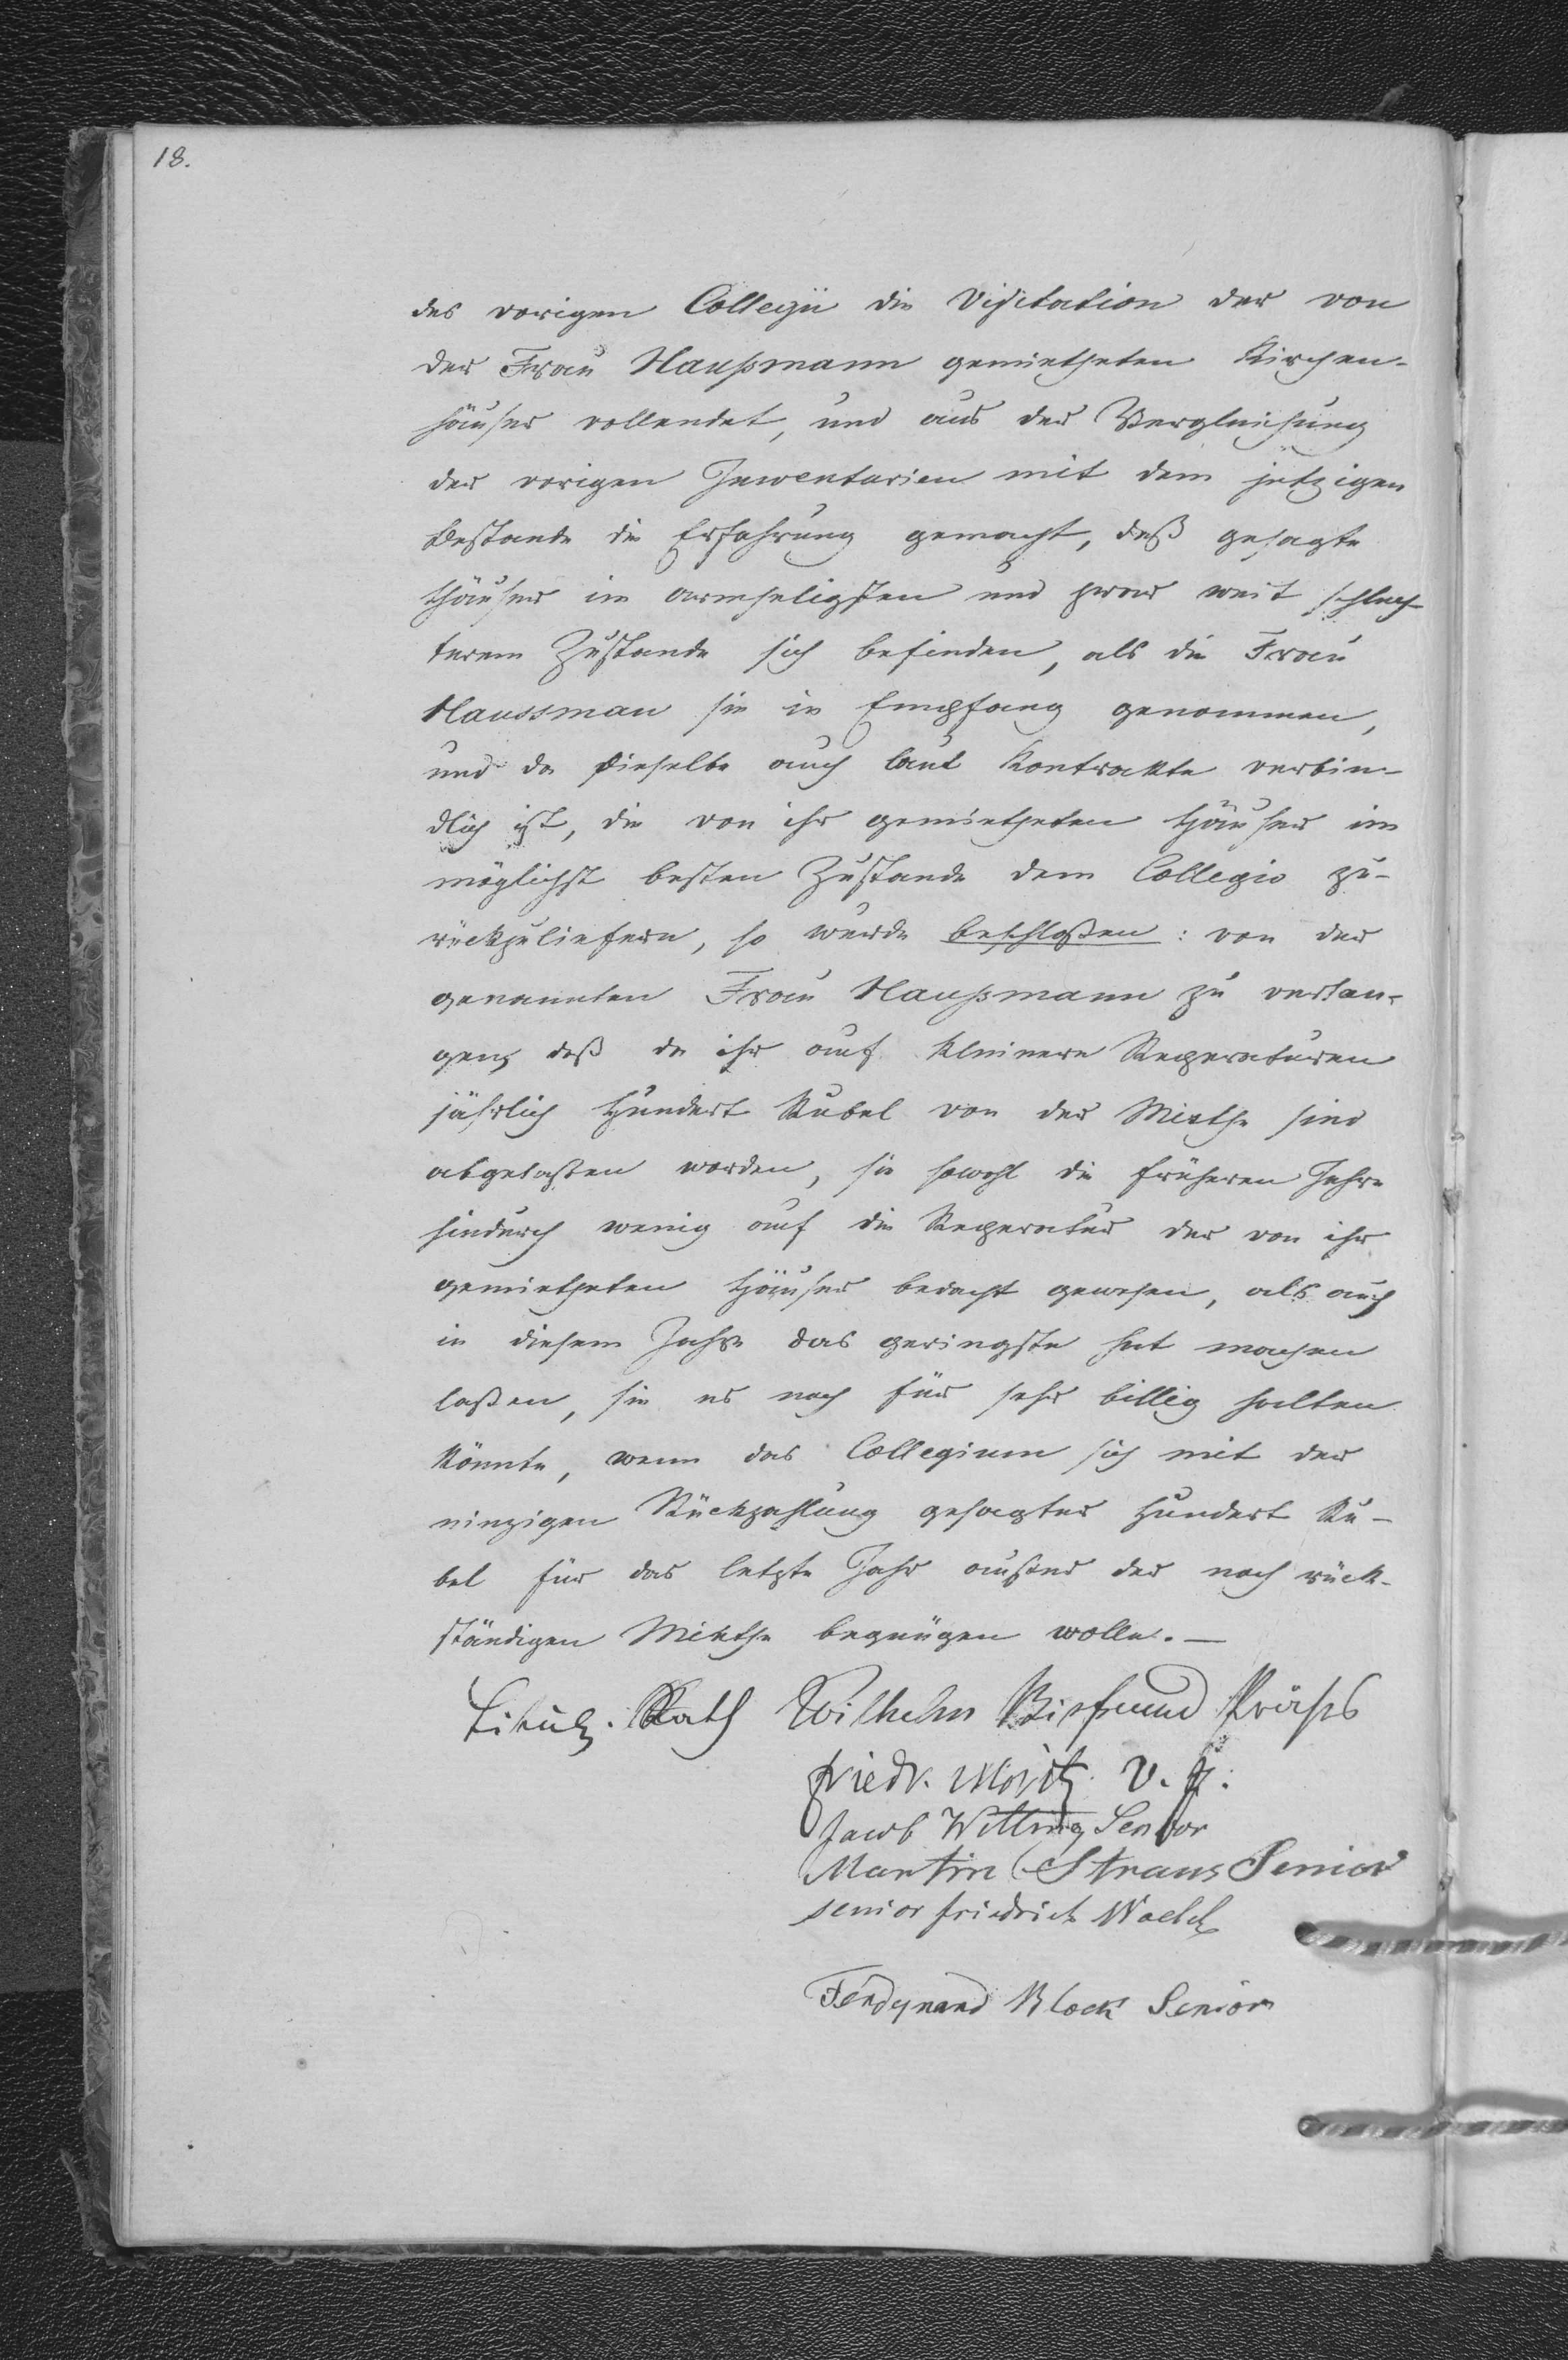 18.
des vorigen Collegii die Visitation der von
der Frau Haußmann gemietheten Kirchen-
häuser vollendet, und aus der Vergleichung
der vorigen Inwentarien mit dem jetzigen
Bestande die Erfahrung gemacht, daß gesagte
Häuser im armseligsten und zwar weit schlech-
terem Zustande sich befinden, als die Frau
Haussman sie in Empfang genommen,
und da dieselbe auch laut Kontrakte verbin-
dlich ist, die von ihr gemietheten Häuser im
möglichst besten Zustande dem Collegio zu-
rückzuliefern, so wurde beschloßen: von der
genannten Frau Haußmann zu verlan-
gen, daß da ihr auf kleinere Reperaturen
jährlich Hundert Rubel von der Miethe sind
abgelaßen worden, sie sowohl die früheren Jahre
hindurch wenig auf die Reperatur der von ihr
gemietheten Häuser bedacht gewesen, als auch
in diesem Jahre das geringste hat machen
laßen, sie es noch für sehr billig halten
könnte, wenn das Collegium sich mit der
einzigen Rückzahlung gesagter Hundert Ru-
bel für das letzte Jahr außer der noch rück-
ständigen Miethe begnügen wolle. —
Titulz. Rath Wilhelm Präses
Friedr. Moritz V. P.
Jacob Wittmg Senior
Martin Straus Senior
senior friedrich
Ferdynand Block Senior